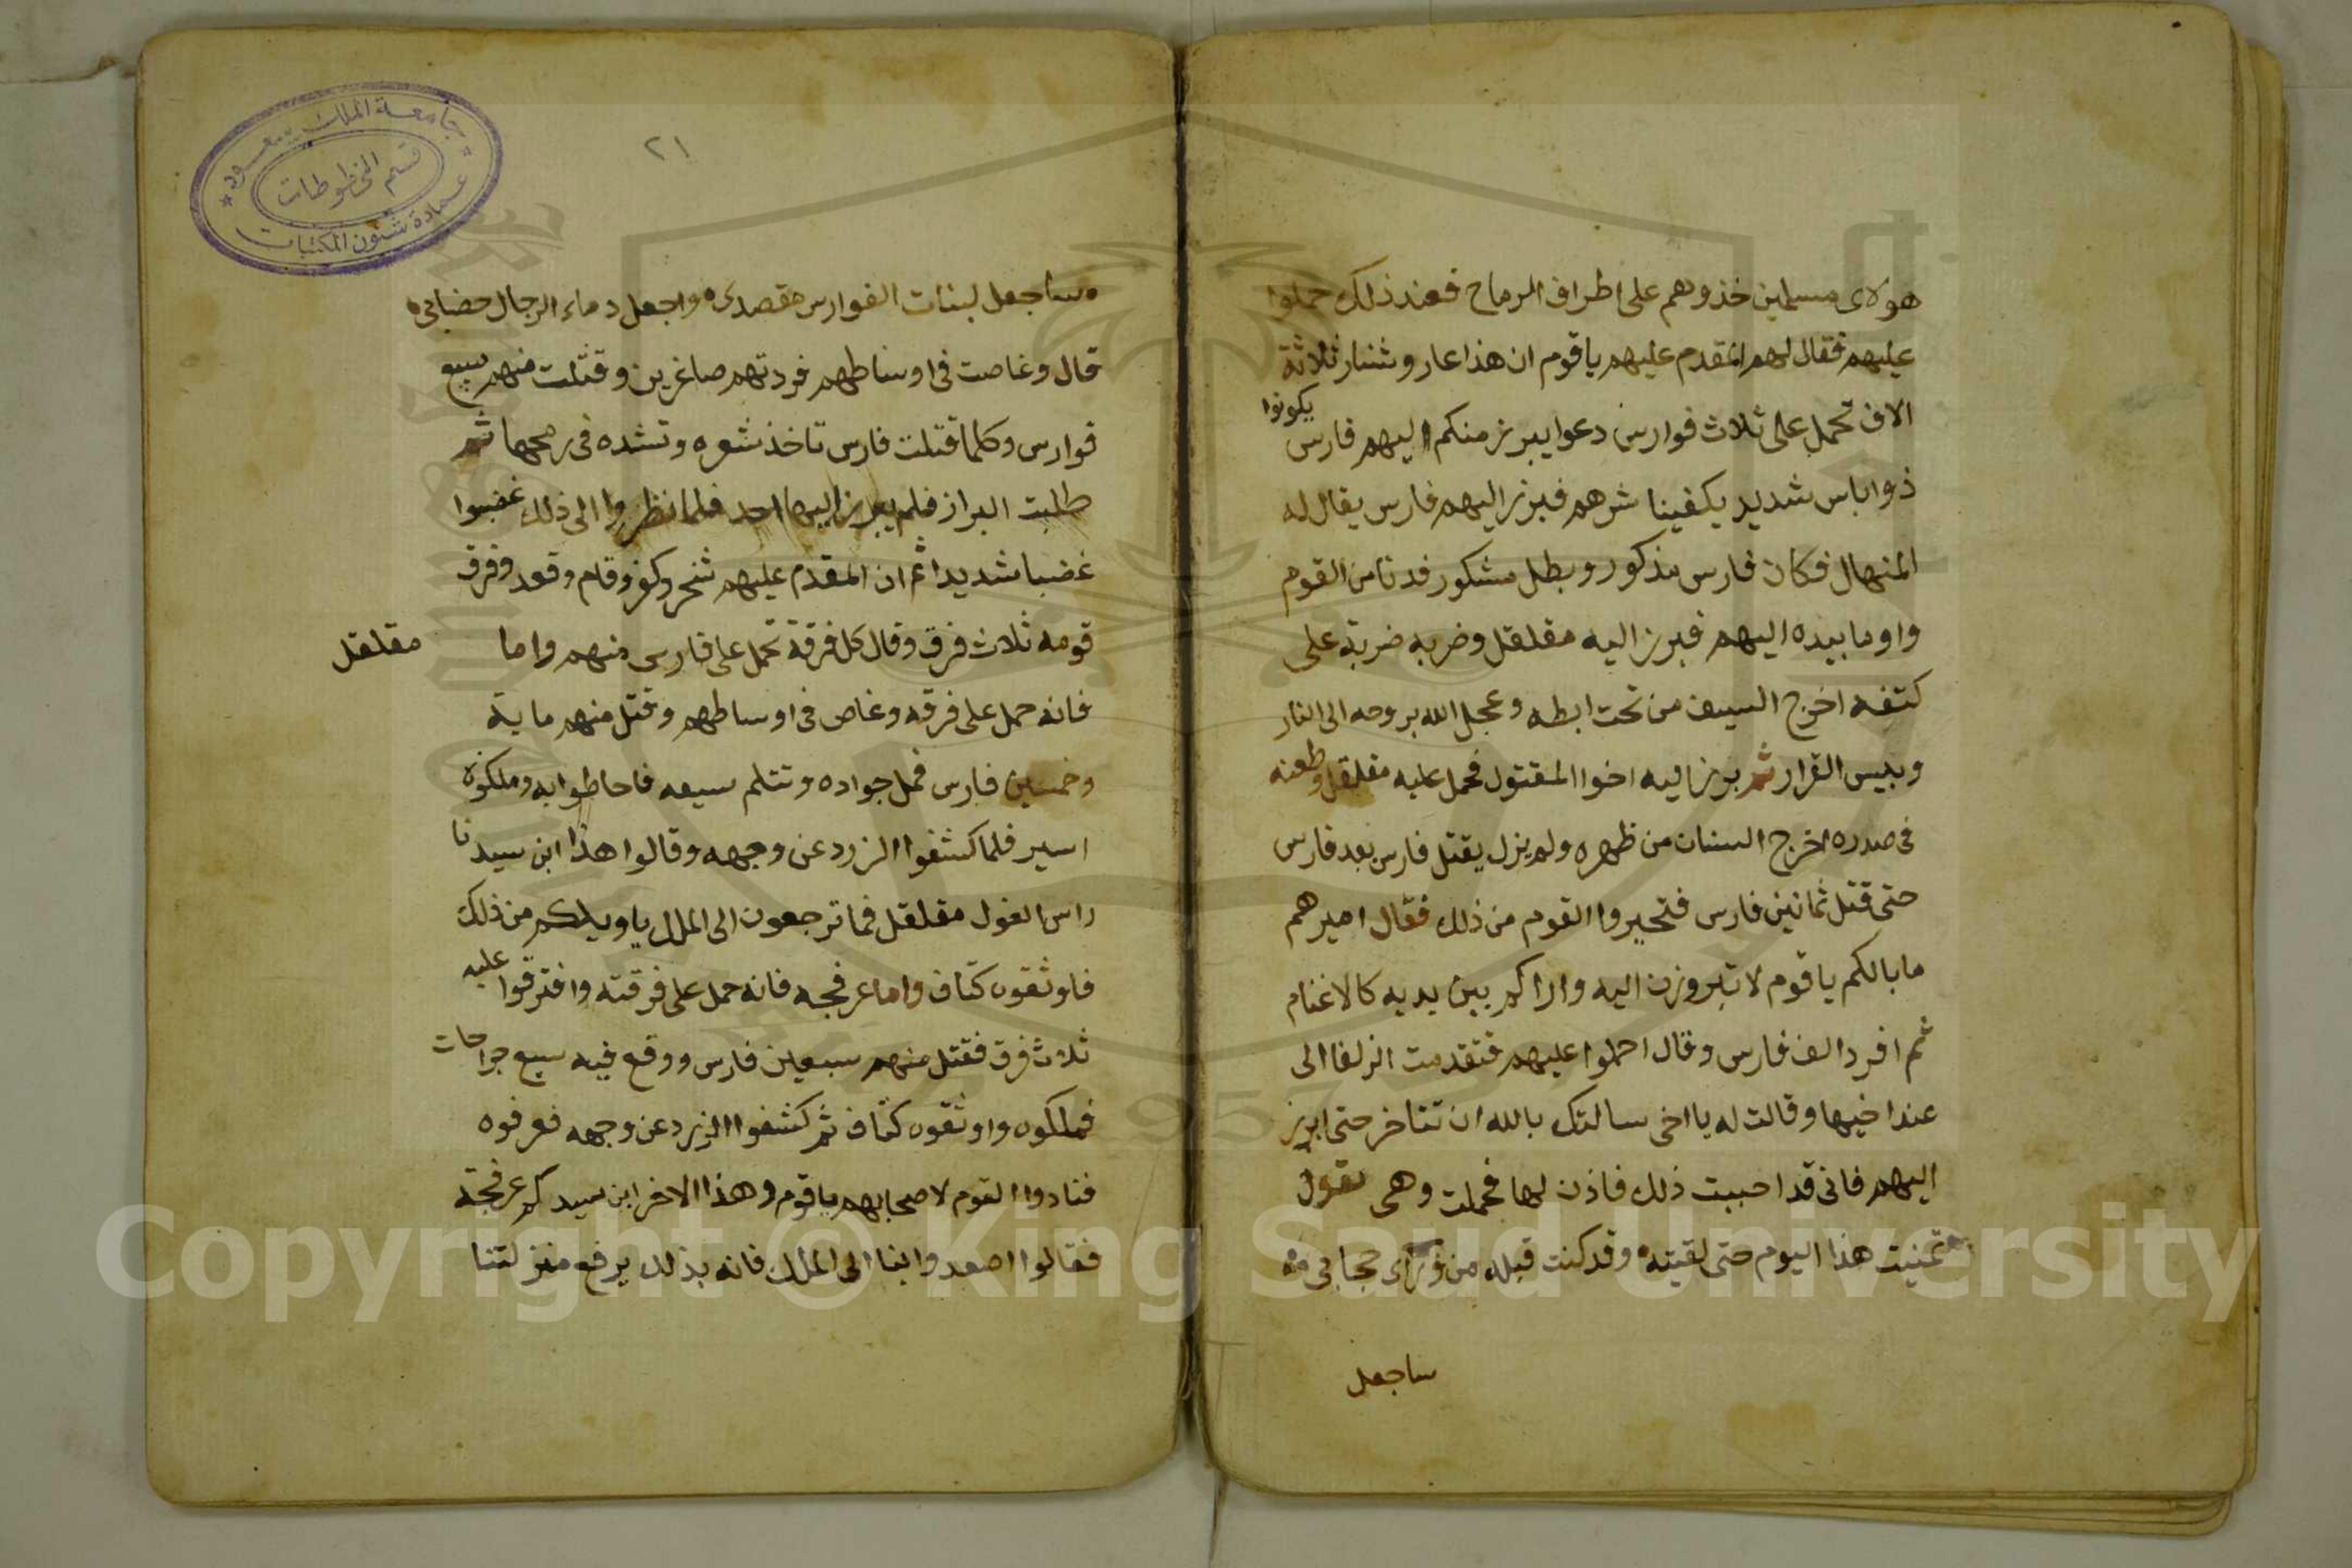 هولاى مسلمين خذوهم على اطراف الرماح فعند ذلك حملوا
عليهم فقال لهم المقدم عليهم ياقوم ان هذا عار وشنار ثلاثة
الاف تحمل على ثلاث فوارس دعوا يبرز منكم اليهم فارس يكونوا
ذوا باس شديد يكفينا شرهم فبرز اليهم فارس يقال له
المنهال فكان فارس مذكور وبطل مشكور فدنا من القوم
واوما بيده اليهم فبرز اليه مقلقل وضربه ضربة على
كتفه اخرج السيف من تحت ابطه وعجل الله بروحه الى النار
وبيس القرار ثم برز اليه اخوا المقتول فحمل عليه مقلقل وطعنه
فى صدره اخرج السنان من ظهره ولم يزل يقتل فارس بعد فارس
حتى قتل ثمانين فارس فتحيروا القوم من ذلك فقال اميرهم
ما بالكم ياقوم لا تبروزن اليه واراكم بين يديه كالاغنام
ثم افرد الف فارس وقال احملوا عليهم فتقدمت الزلفا الى
عند اخيها وقالت له يا اخى سالتك بالله ان تتاخر حتى ابرز
اليهم فانى قد احببت ذلك فاذن لها فحملت وهى تقول
تمنيت هذا اليوم حتى لقيته وقد كنت قبله من وراى حجابى
ساجعل
٢١
ساجعل لبنات الفوارس مقصدى واجعل دماء الرجال خضابى
قال وغاصت فى اوساطهم فردتهم صاغرين وقتلت منهم سبع
فوارس وكلما قتلت فارس تاخذ شعره وتشده فى رمحها ثم
طلبت البراز فلم يبرز اليها احد فلما نظروا الى ذلك غضبوا
غضبا شديدا ثم ان المقدم عليهم شخر وكفر وقام وقعد وفرق
قومه ثلاث فرق وقال كل فرقة تحمل على فارس منهم واما مقلقل
فانه حمل على فرقه وغاص فى اوساطهم وقتل منهم ماية
وخمسين فارس فمل جواده وتتلم سيعه فاحاطوا به وملكوه
اسير فلما كشفوا الزرد عن وجهه وقالوا هذا ابن سيدنا
راس الغول مقلقل فما ترجعون الى الملك يا ويلكم من ذلك
فاوثقوه كتاف واما عرفجه فانه حمل على فرقته وافترقوا عليه
ثلاث فرق فقتل منهم سبعين فارس ووقع فيه سبع جراحات
فملكوه واوثقوه كتاف ثم كشفوا الزرد عن وجهه فعرفوه
فنادوا القوم لاصحابهم ياقوم وهذا الاخر ابن سيدكم عرفجة
فقالوا اصعدوا بنا الى الملك فانه بذلك يرفع منزلتنا
جامعة الملك سعود
قسم المخطوطات
عمادة شئون المكتبات
Copyright © King Saud University
1957